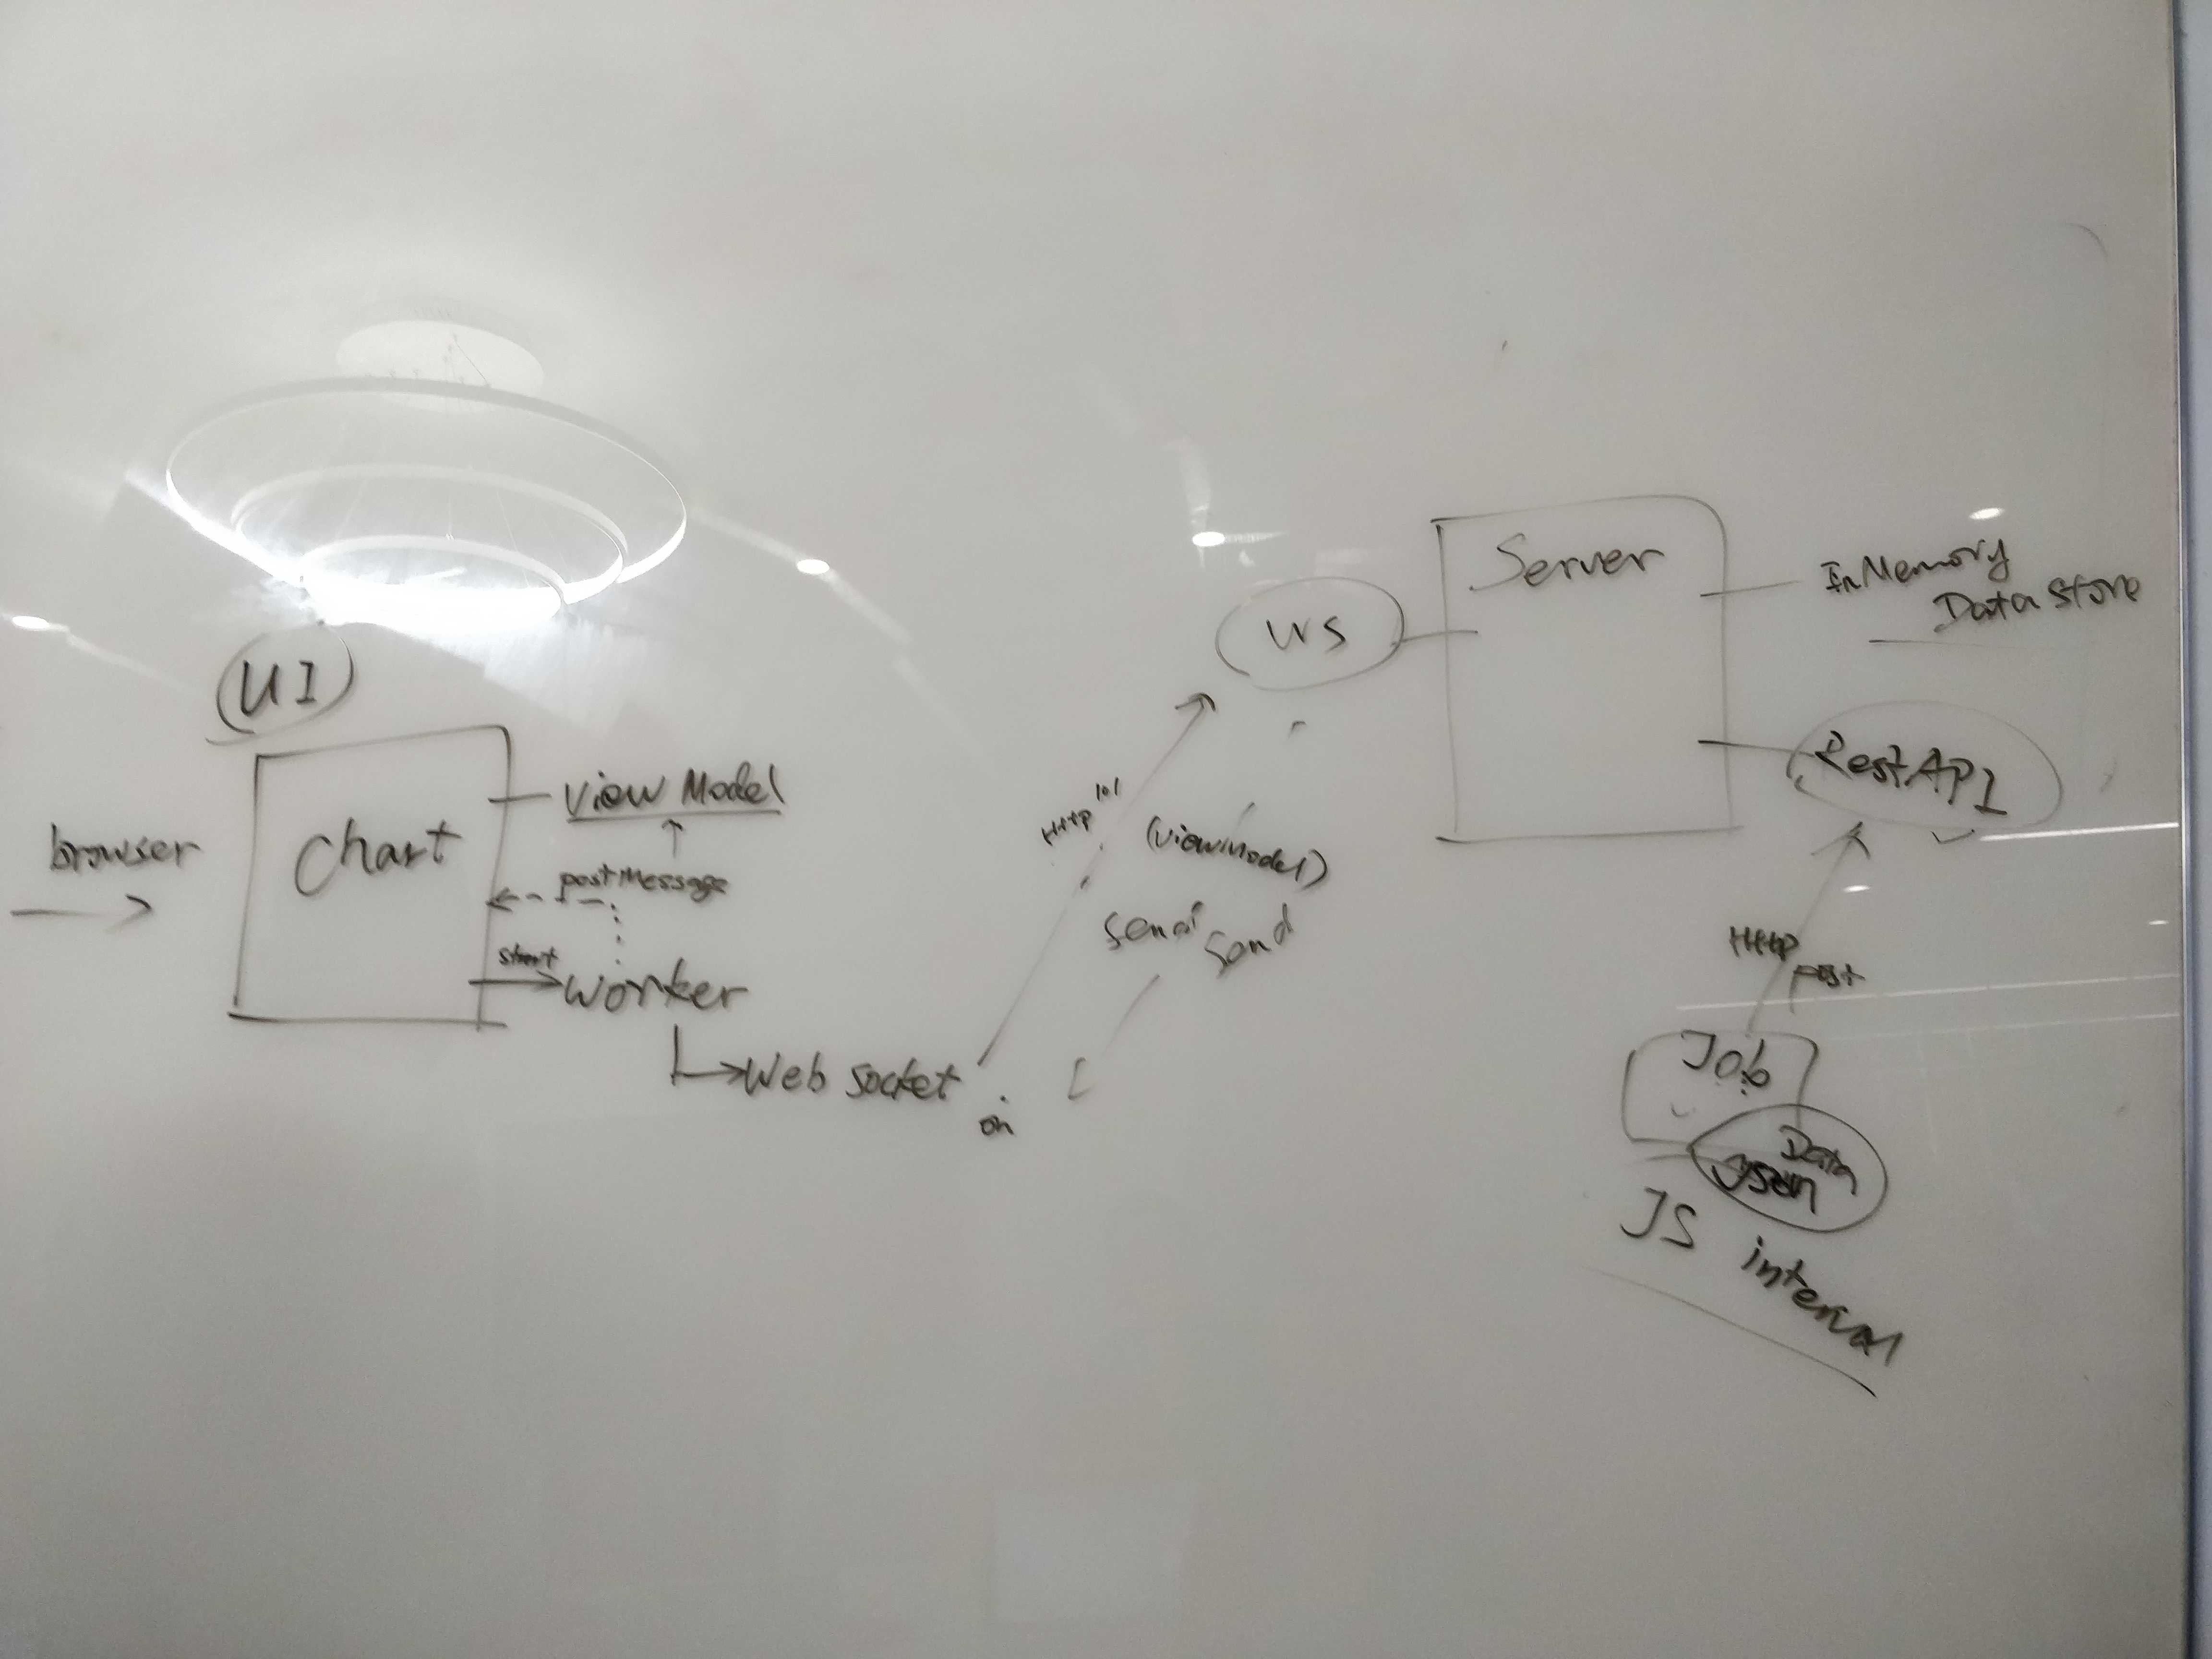 UI
browser
Chart
View Model
postMessage
start
worker
Web socket
on
HttP 101
(viewModel)
send send
WS
Server
InMemory
Data store
Rest API
Http
post
Job
Data
JSON
JS interval